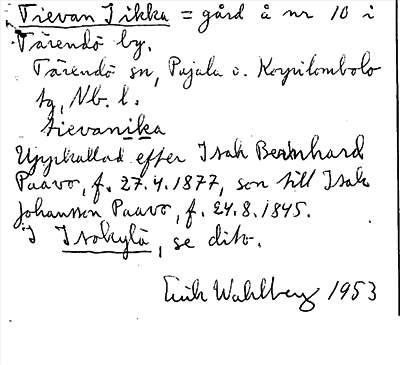 Tievan Iikka = gård å nr 10 i
Tärendö by.
Tärendö sn, Pajala o. Korpilombolo
tg, Nb. l.
tievanika
Uppkallad efter Isak Bernhard
Paavo, f. 27.4.1877, son till Isak
Johansson Paavo, f. 24.8.1845.
I Isokylä, se dito.
Erik Wahlberg 1953